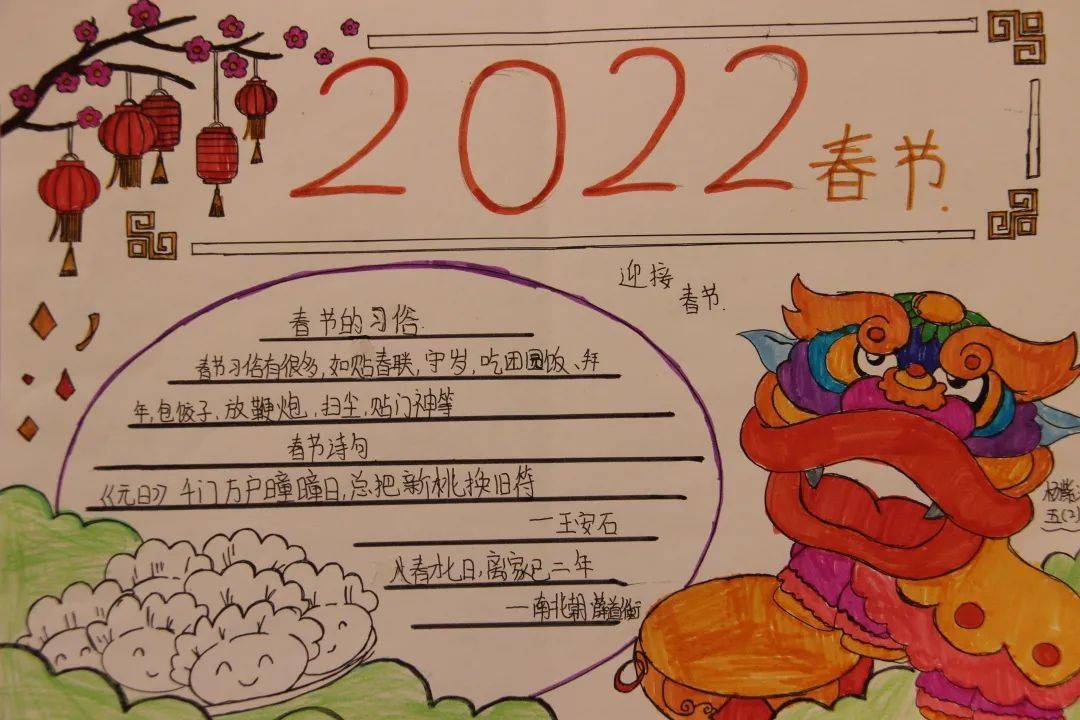 2022春节
迎接
春节
春节的习俗
春节习俗有很多,如贴春联,守岁,吃团圆饭、拜
年,包饺子,放鞭炮,扫尘,贴门神等
春节诗句
《元日》千门万户曈曈日,总把新桃换旧符
一王安石
春七日,离家已二年
一南北朝 薛道衡
五(2)